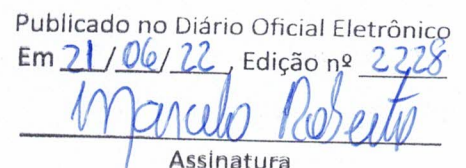 Publicado no Diário Oficial Eletrônico
Em 21/06/22, Edição nº 2228
Marcelo Roberto
Assinatura